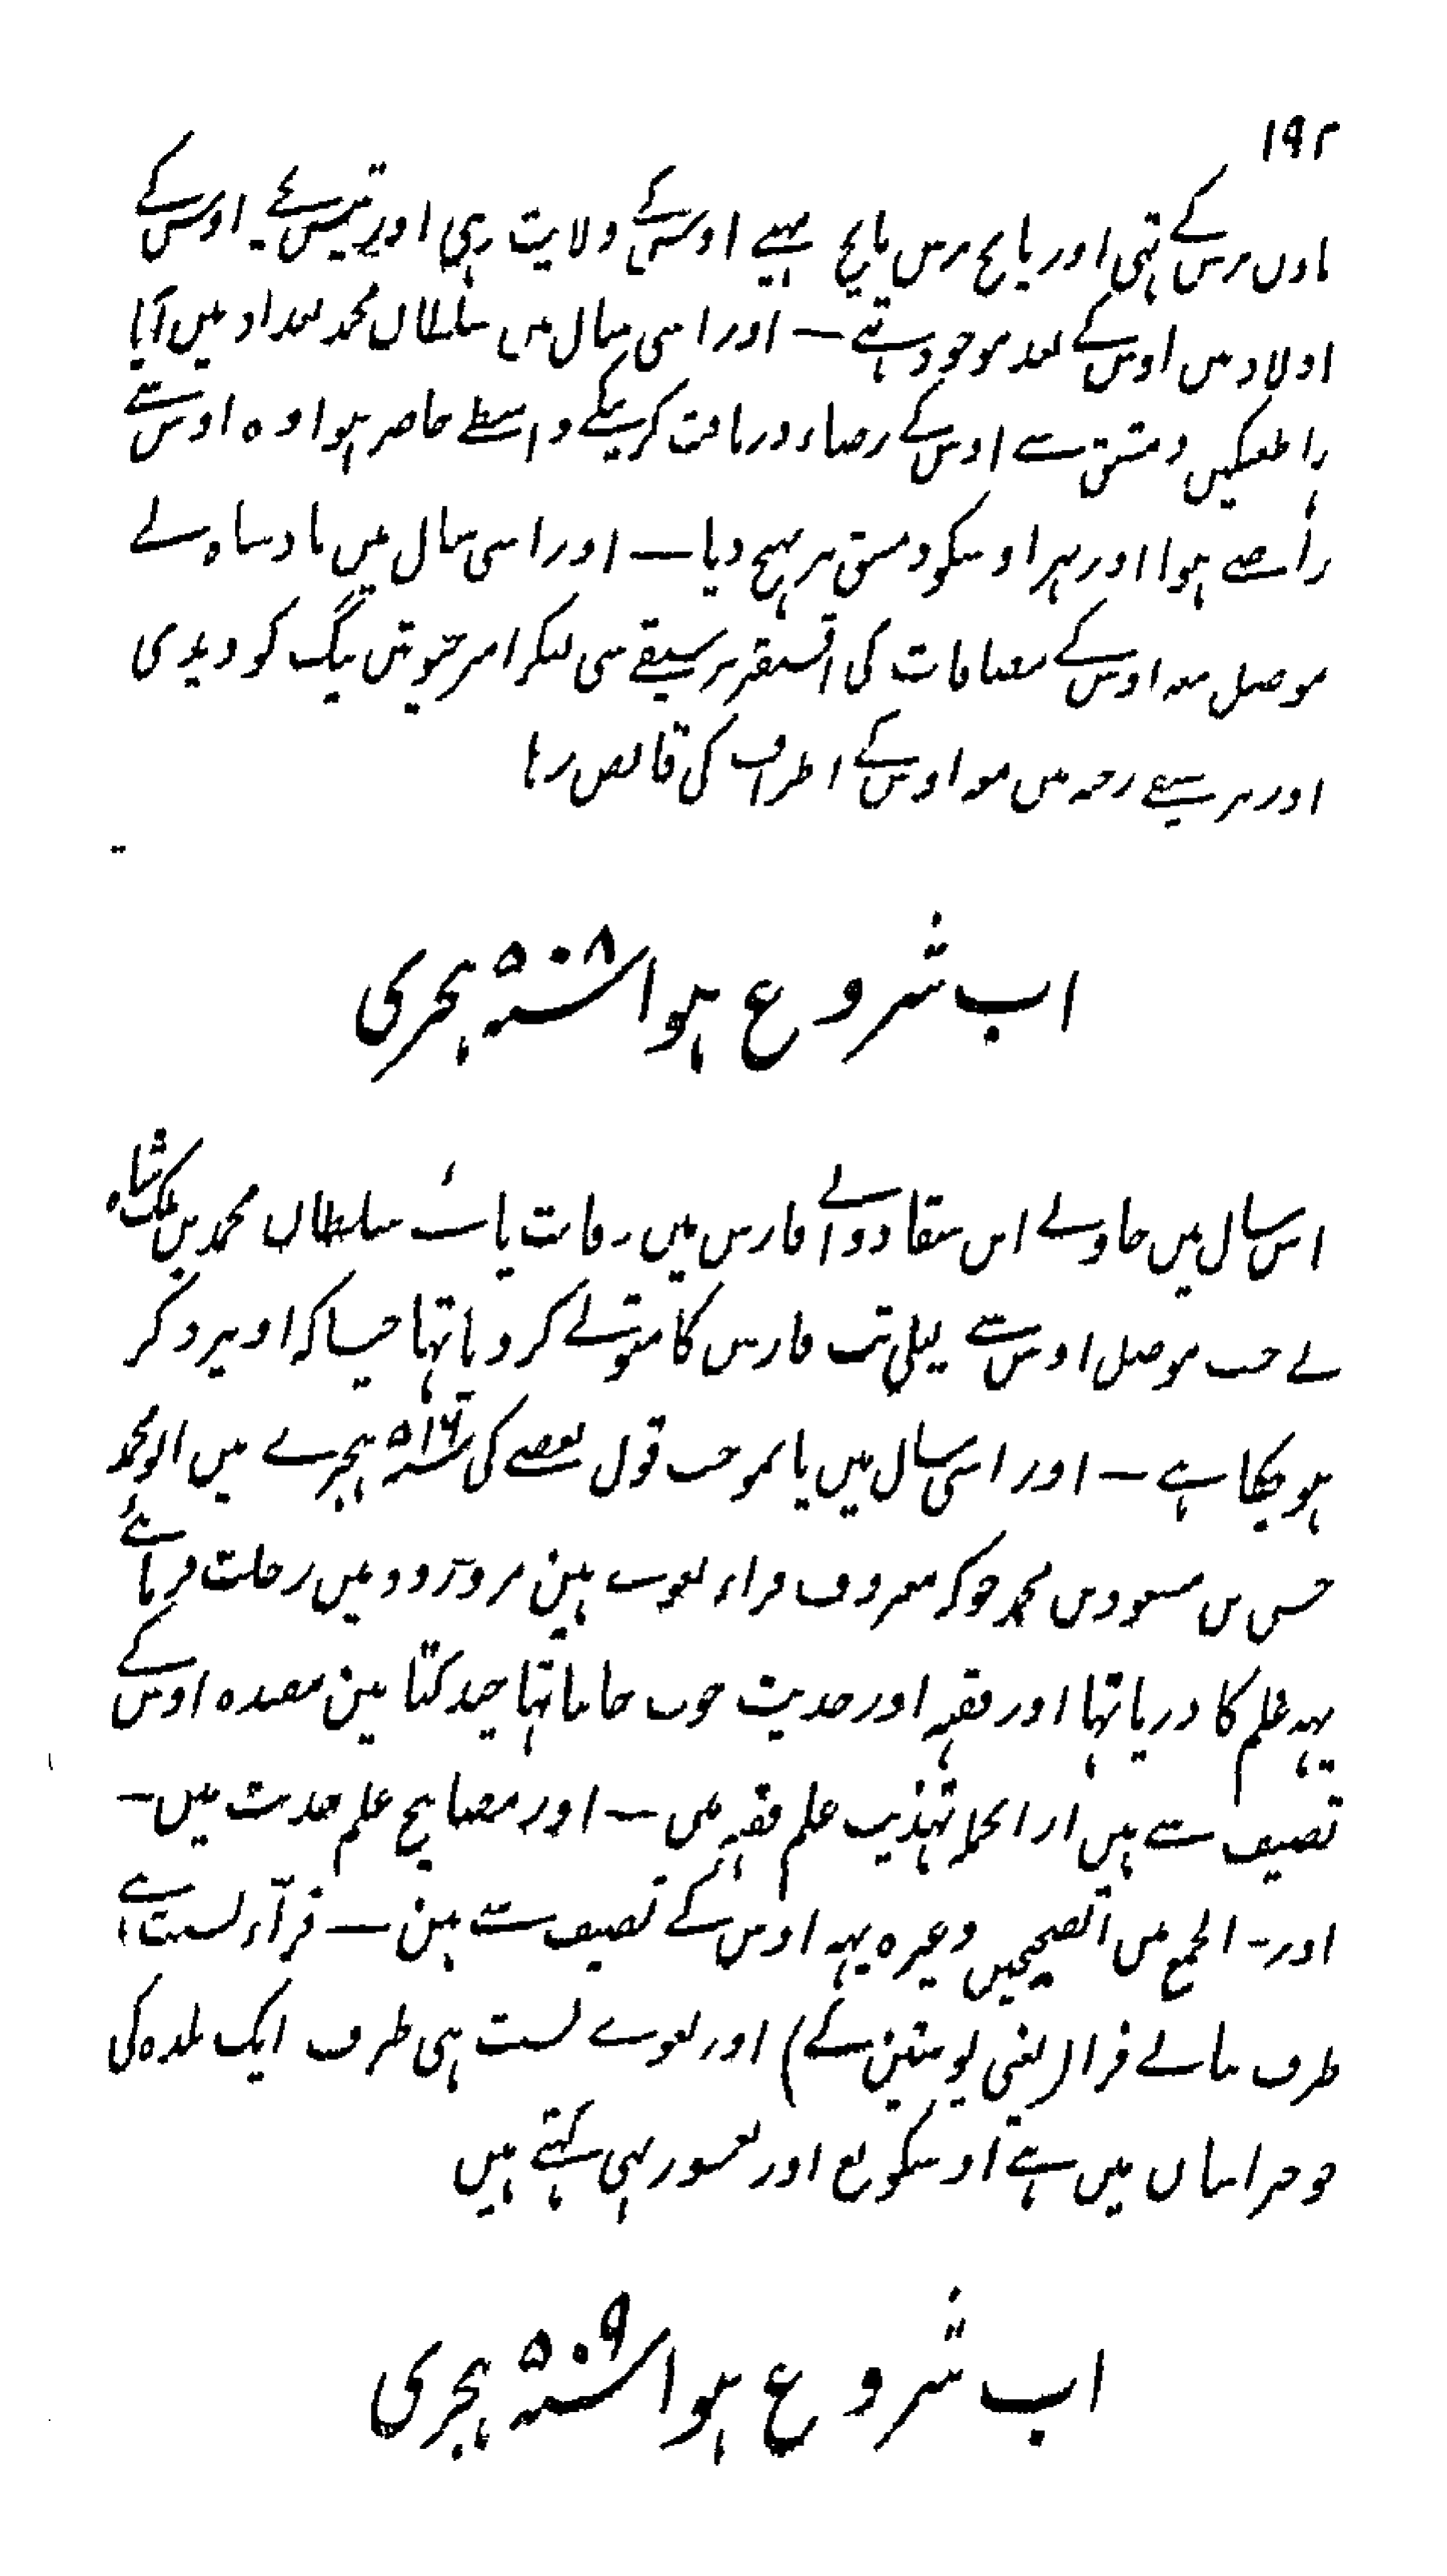 ۱۹۲
باون برس کے تہی اور پانچ برس پانچ مہینے اوس کے ولایت رہی اور تیس بیٹے اوس کے
اولاد میں اوس کے بعد موجود تہے — اور اسی سال میں سلطان محمد بغداد میں آیا
طغتکین دمشق سے اوس کے رضاء دریافت کرنیکے واسطے حاضر ہوا وہ اوس سے
راضے ہوا اور پہر اوسکو دمشق پر بہیج دیا — اور اسی سال میں بادشاہ نے
موصل معہ اوس کے مضافات کی اقسنقر برسیقے سی لیکر امیر جیوش بیگ کو دیدی
اور برسیقے رحبہ میں معہ اوس کے اطراف کی قابض رہا
اب شروع ہوا سنہ ۵۰۸ ہجری
اس سال میں جاولے اس سقادو نے فارس میں وفات پائے سلطان محمد بن ملک شاہ
نے جب موصل اوس سے لیلی تب فارس کا متولے کر دیا تہا جیسا کہ اوپر ذکر
ہو چکا ہے — اور اسی سال میں یا بموجب قول بعضے کی سنہ ۵۱۶ ہجرے میں ابو محمد
حسن بن مسعود بن محمد جوکہ معروف فراء بغوی ہین مروروذ میں رحلت فرمائے
یہہ علم کا دریا تہا اور فقہ اور حدیث خوب جانتا تہا چند کتابین مفیدہ اوس کے
تصنیف سے ہیں از انجملہ تہذیب علم فقہ میں — اور مصابیح علم حدیث میں —
اور — الجمع بین الصحیحین وغیرہ یہہ اوس کے تصنیف سے ہین — فرآء نسبت ہے
طرف بنانے فرا (یعنی پوستین کے) اور بغوے نسبت ہی طرف ایک بلدہ کی
جو خراسان میں ہے اوسکو بغ اور بغشور بہی کہتے ہیں
اب شروع ہوا سنہ ۵۰۹ ہجری